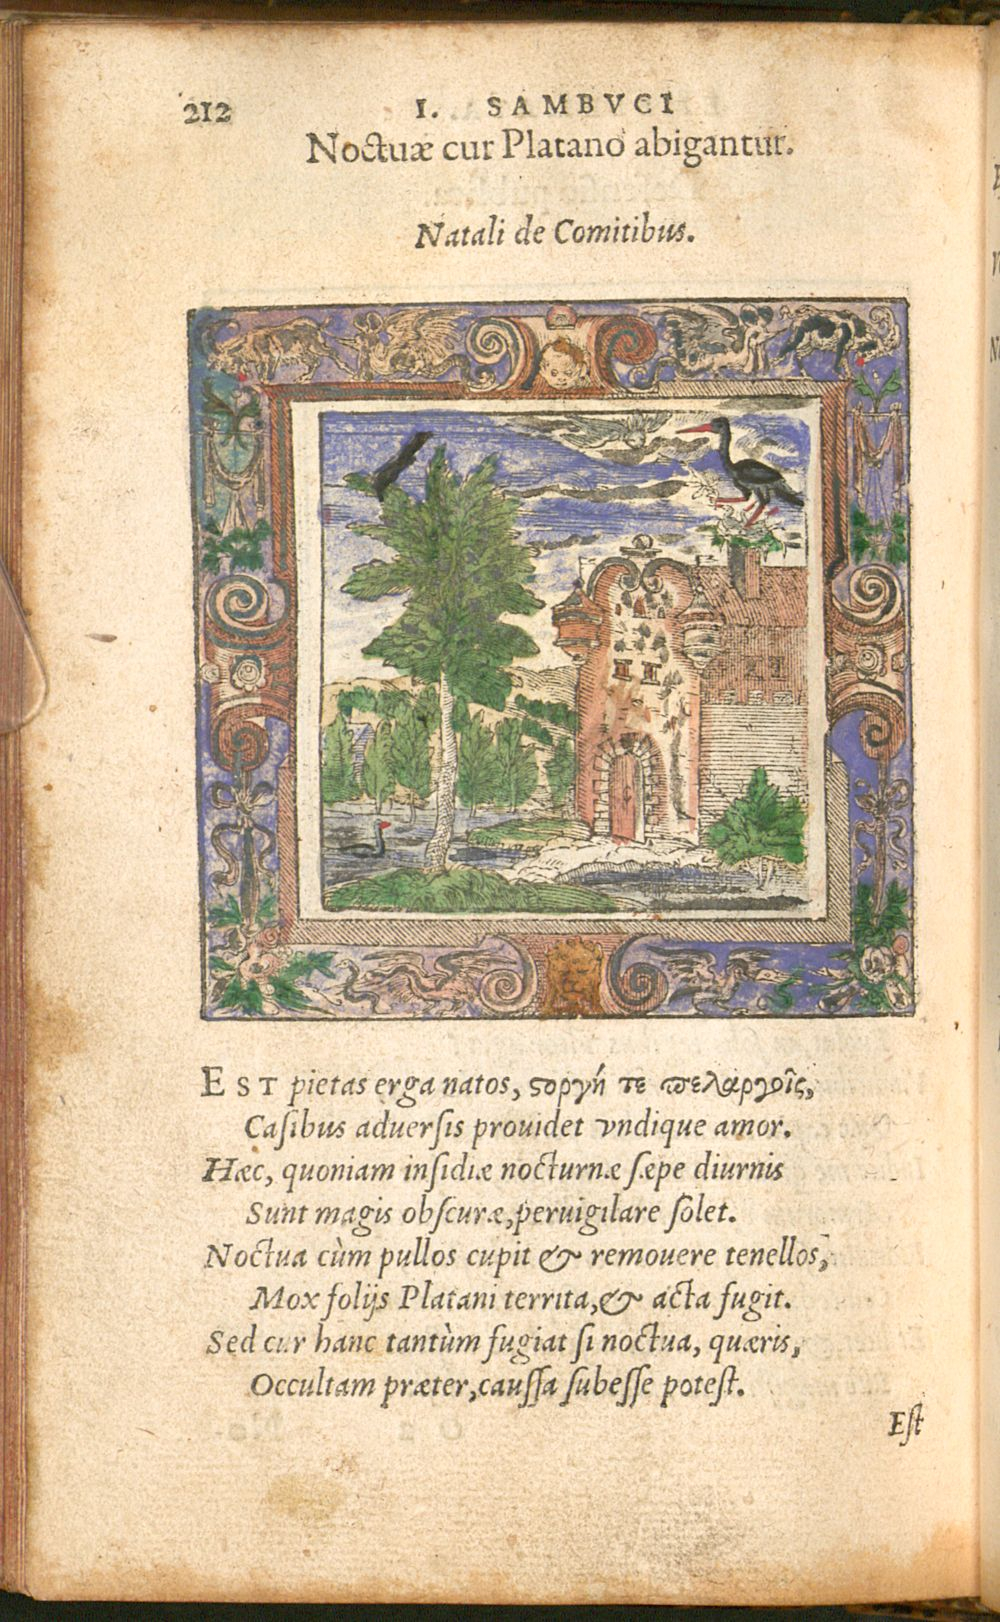 212
I. SAMBVCI
Noctuæ cur Platano abigantur.
Natali de Comitibus.
EST pietas erga natos, ϛοργή τε πελαργοῖς,
Casibus aduersis prouidet vndique amor.
Hæc, quoniam insidiæ nocturnæ sæpe diurnis
Sunt magis obscuræ, peruigilare solet.
Noctua cùm pullos cupit & remouere tenellos,
Mox folijs Platani territa, & acta fugit.
Sed cur hanc tantùm fugiat si noctua, quæris,
Occultam præter, caussa subesse potest.
Est